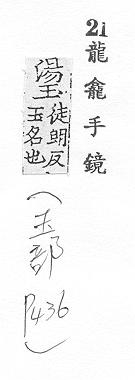 21 龍龕手鏡
璗徒朗反
玉名也
(玉部 P436)